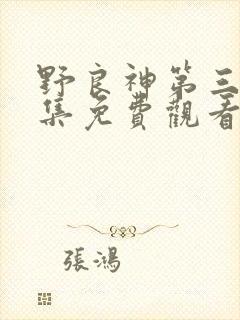 野良神第三
集免費觀看
張鴻